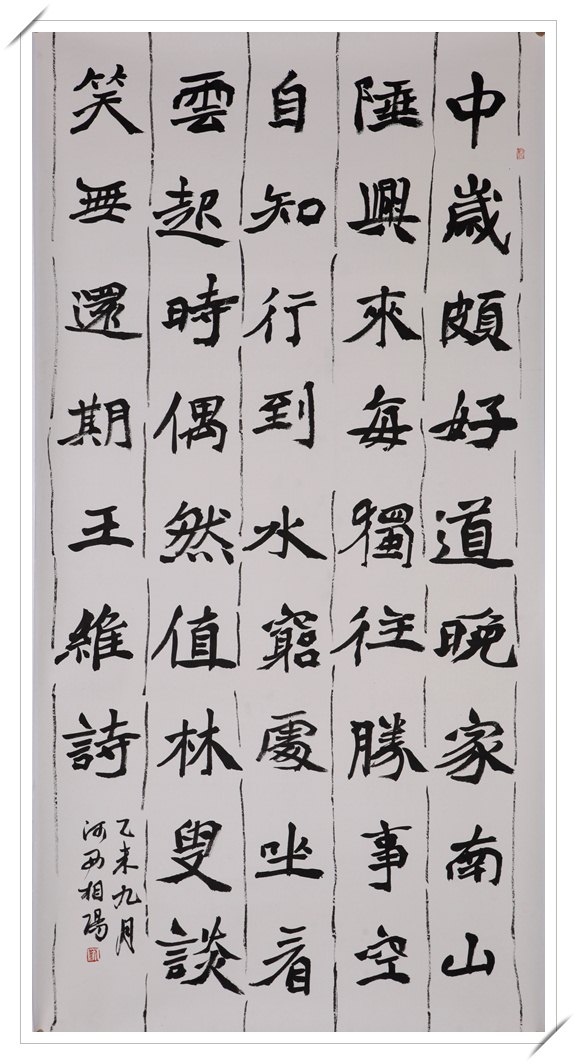 中歲頗好道晚家南山
陲興來每獨往勝事空
自知行到水窮處坐看
雲起時偶然值林叟談
笑無還期王維詩
乙未九月
河西相陽